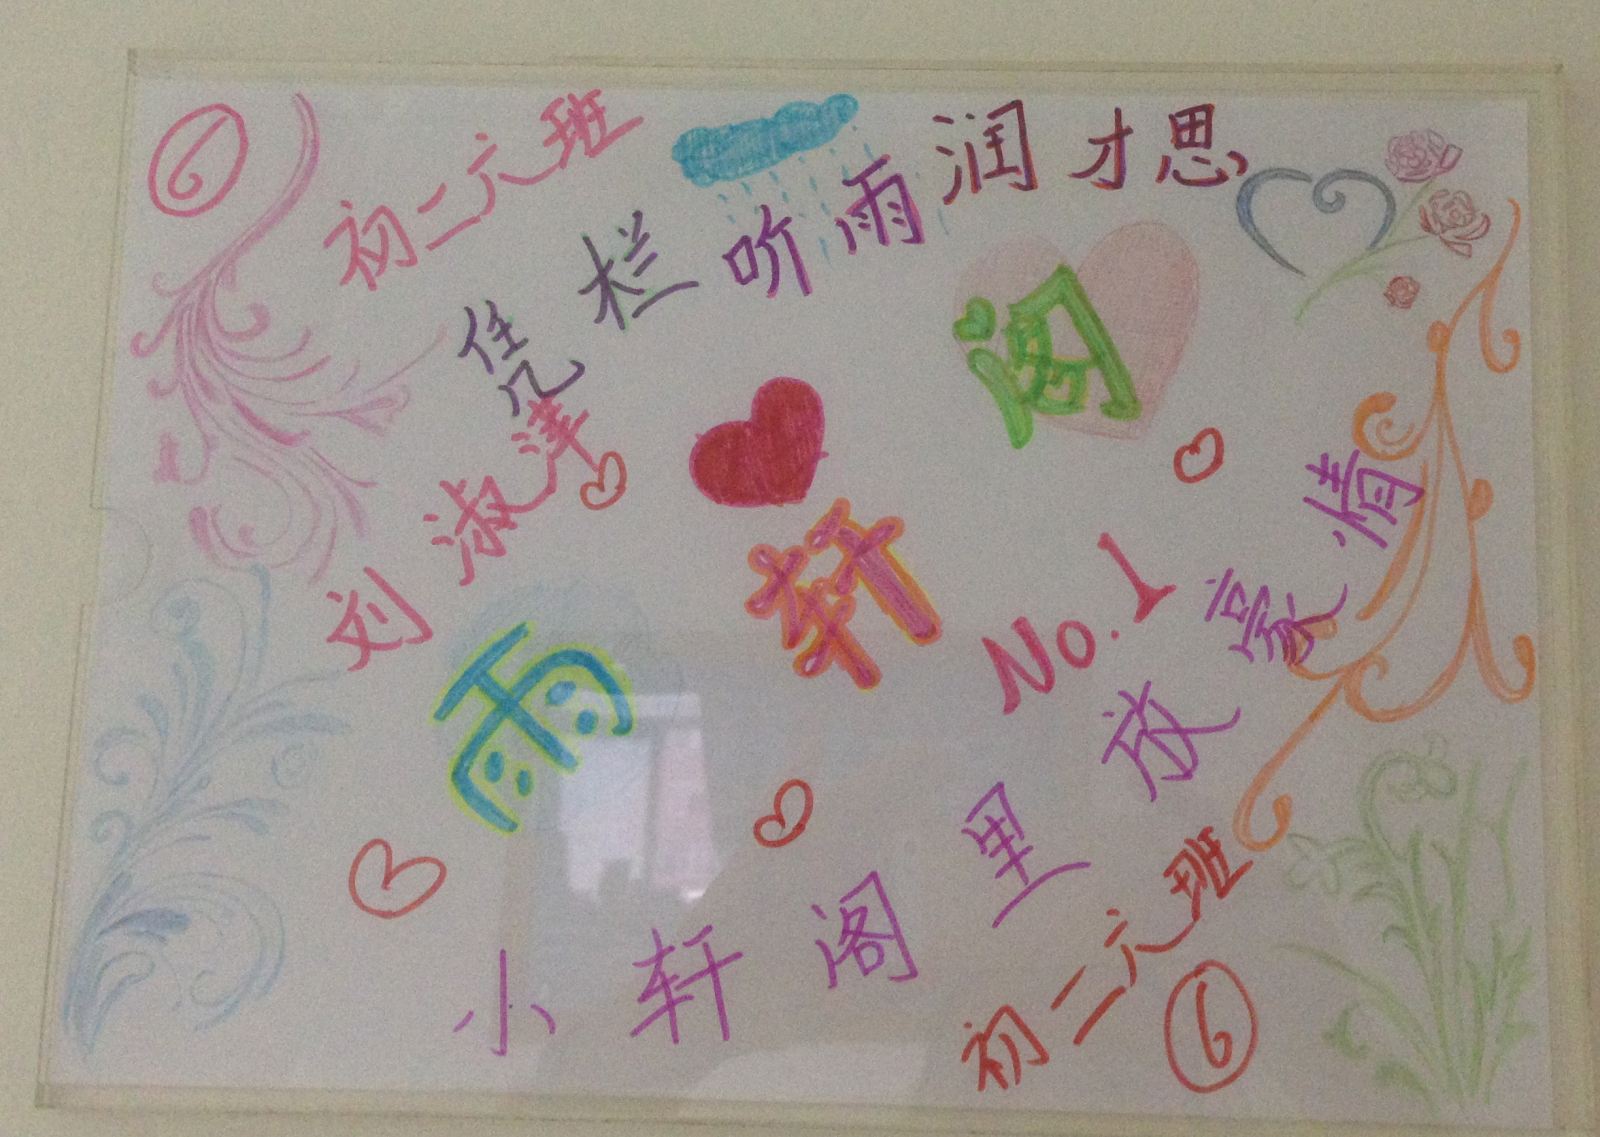 ⑥
初二六班
凭栏听雨润才思,
雨轩阁
刘淑津
No.1
小轩阁里放豪情
初二六班
⑥